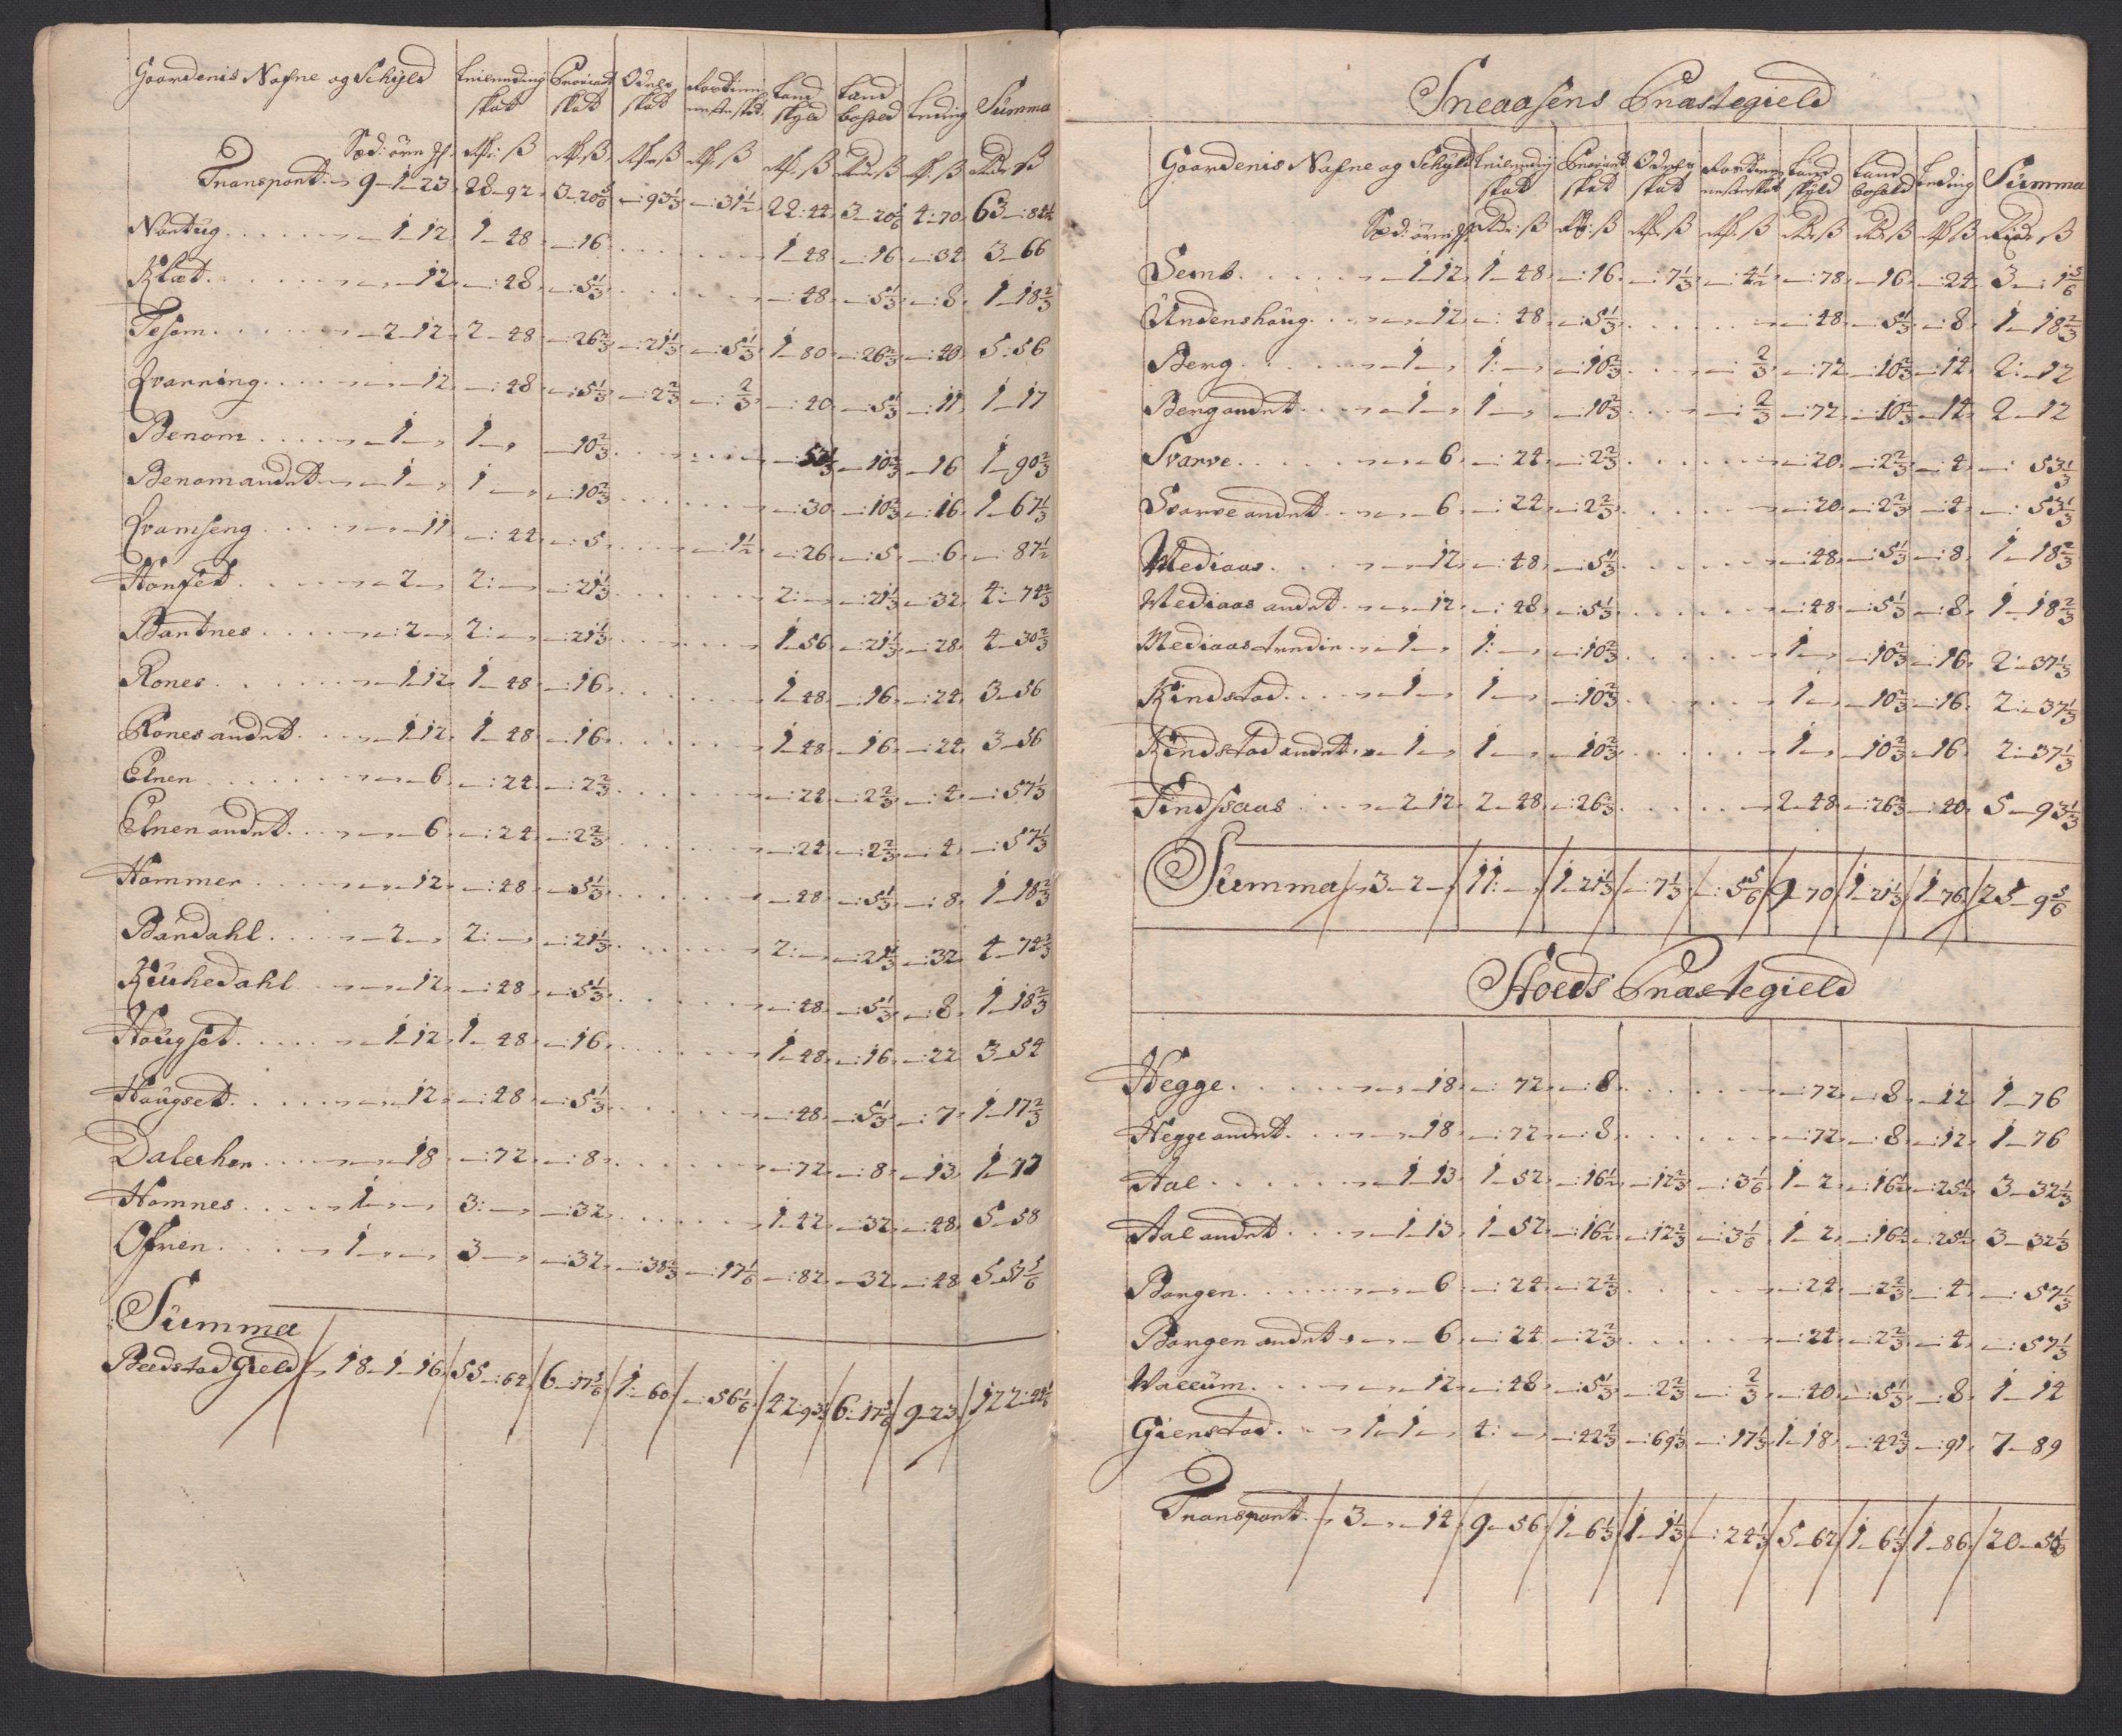 Gaardenis Nafne og Schyld Leilending skat Proviant skat Odels skat Land skyld Land bohold Leding Summa
Spd: ören
Transport 9-1-23 28-92 3-20 5/6 -:93 1/3 -:31 1/2 22:44 3-20 5/6 4:70 63-:84 1/2
Nörtug -1-12 1-48 -:16 1-48 -:16 -:34 3-66
Klæt -12 -:48 -:5 1/3 -:48 -:5 1/3 -:8 1-18 2/3
Tesom -2-12 2-48 -:26 2/3 -:21 1/3 -:5 1/3 1-80 -:26 2/3 -:40 5:56
Qvarning -12 -:48 -:5 1/3 -:2 2/3 -: 2/3 -:40 -:5 1/3 -:11 1-17
Benom -1- 1- -:10 2/3 -:53 1/3 -:10 2/3 -16 1-90 2/3
Benom andet -1- 1- -:10 2/3 -:30 -:10 2/3 -:16 1-67 1/3
Qvamseng -11 -:44 -:5 -:1 1/2 -:26 -:5 -:6 -:87 1/2
Hongset -2- 2:- -:21 1/3 2:- -:21 1/3 -:32 4:-74 2/3
Bartnes -:2- 2:- -:21 1/3 1-56 -:21 1/3 -:28 4-30 2/3
Rones -1-12 1-48 -:16 1-48 -:16 -:24 3-56
Rones andet -1-12 1-48 -:16 1-48 -:16 -:24 3-56
Elnen -6 -:24 -:2 2/3 -:24 -:2 2/3 -:4 -:57 1/3
Elnen andet -6 -:24 -:2 2/3 -:24 -:2 2/3 -:4 -:57 1/3
Hammer -12 -:48 -:5 1/3 -:48 -:5 1/3 -:8 1-18 2/3
Bandahl -2- 2:- -:21 1/3 2:- -:21 1/3 -:32 4-74 2/3
Kirkedahl -12 -:48 -:5 1/3 -:48 -:5 1/3 -:8 1-18 2/3
Hougset -1-12 1-48 -:16 1-48 -:16 -:22 3-54
Hougset -12 -:48 -:5 1/3 -:48 -:5 1/3 -:7 1-17 2/3
Dalecker -18 -:72 -:8 -:72 -:8 -:13 1-77
Homnes 1- 3:- -:32 1-42 -:32 -:48 5-58
Ofren 1- 3- -:32 -:38 2/3 -:17 1/6 -:82 -32 -:48 5-57 5/6
Summa
Beedstad Gield 18-1-16 55-:64 6-17 5/6 1-60 -:56 1/6 42:93 6:17 5/6 9-23 122:44
Sneaasens Præstegield
Gaardenis Nafne og Schyld Leilending skat Proviant skat Odels skat Land skyld Land bohold Leding Summa
Spd: ören
Semb -1-12 1-48 -:16 -:7 1/3 -:4 1/2 -:78 -16 -:24 3-:1 5/6
Andenshoug -12 -:48 -:5 1/3 -:48 -:5 1/3 -:8 1-18 2/3
Berg -1- 1:- -:10 2/3 -: 2/3 -:72 -:10 2/3 -:14 2:-12
Berg andet -1- 1- -:10 2/3 -: 2/3 -:72 -:10 2/3 -14 2-12
Svarve -6 -:24 -:2 2/3 -:20 -:2 2/3 -:4 -:53 1/3
Svarve andet -6 -:24 -:2 2/3 -:20 -:2 2/3 -:4 -:53 1/3
Mediaas -12 -:48 -:5 1/3 -:48 -:5 1/3 -:8 1-18 2/3
Mediaas andet -12 -:48 -:5 1/3 -:48 -:5 1/3 -:8 1-18 2/3
Mediaas tredie -1- 1:- -:10 2/3 1- -:10 2/3 -:16 2:-37 1/3
Kindstad -1- 1- -:10 2/3 1- -:10 2/3 -:16 2:-37 1/3
Kindstad andet -1- 1- -:10 2/3 1- -:10 2/3 -16 2:-37 1/3
Findsaas -2-12 2-48 -:26 2/3 2-48 -:26 2/3 -:40 5-93 1/3
Summa 3-2- 11:- 1-21 1/3 -:7 1/3 -:5 5/6 9-70 1-21 1/3 1-76 25-9 5/6
Stoeds Præstegield
Hegge -18 -:72 -:8 -:72 -:8 -:12 1-76
Hegge andet -18 -:72 -:8 -:72 -:8 -:12 1-76
Aal -1-13 1-52 -:16 1/2 -:12 2/3 -:3 1/6 1-2 -:16 1/2 -:25 1/2 3-32 1/3
Aal andet -1-13 1-52 -:16 1/2 -:12 2/3 -:3 1/6 1-2 -:16 1/2 -:25 1/2 3-32 1/3
Bangen -6 -:24 -:2 2/3 -:24 -:2 2/3 -:4 -:57 1/3
Bangen andet -6 -:24 -:2 2/3 -:24 -:2 2/3 -:4 -:57 1/3
Wallum -12 -:48 -:5 1/3 -:2 2/3 -: 2/3 -:40 -:5 1/3 -:8 1-14
Gienstad 1-1- 4:- -:42 2/3 -:69 1/3 -:17 1/3 1-18 -:42 2/3 -:91 7-89
Transport 3-14 9-56 1-6 1/3 1-1 1/3 -:24 1/3 5-62 1-6 1/3 1-86 20-50 1/3